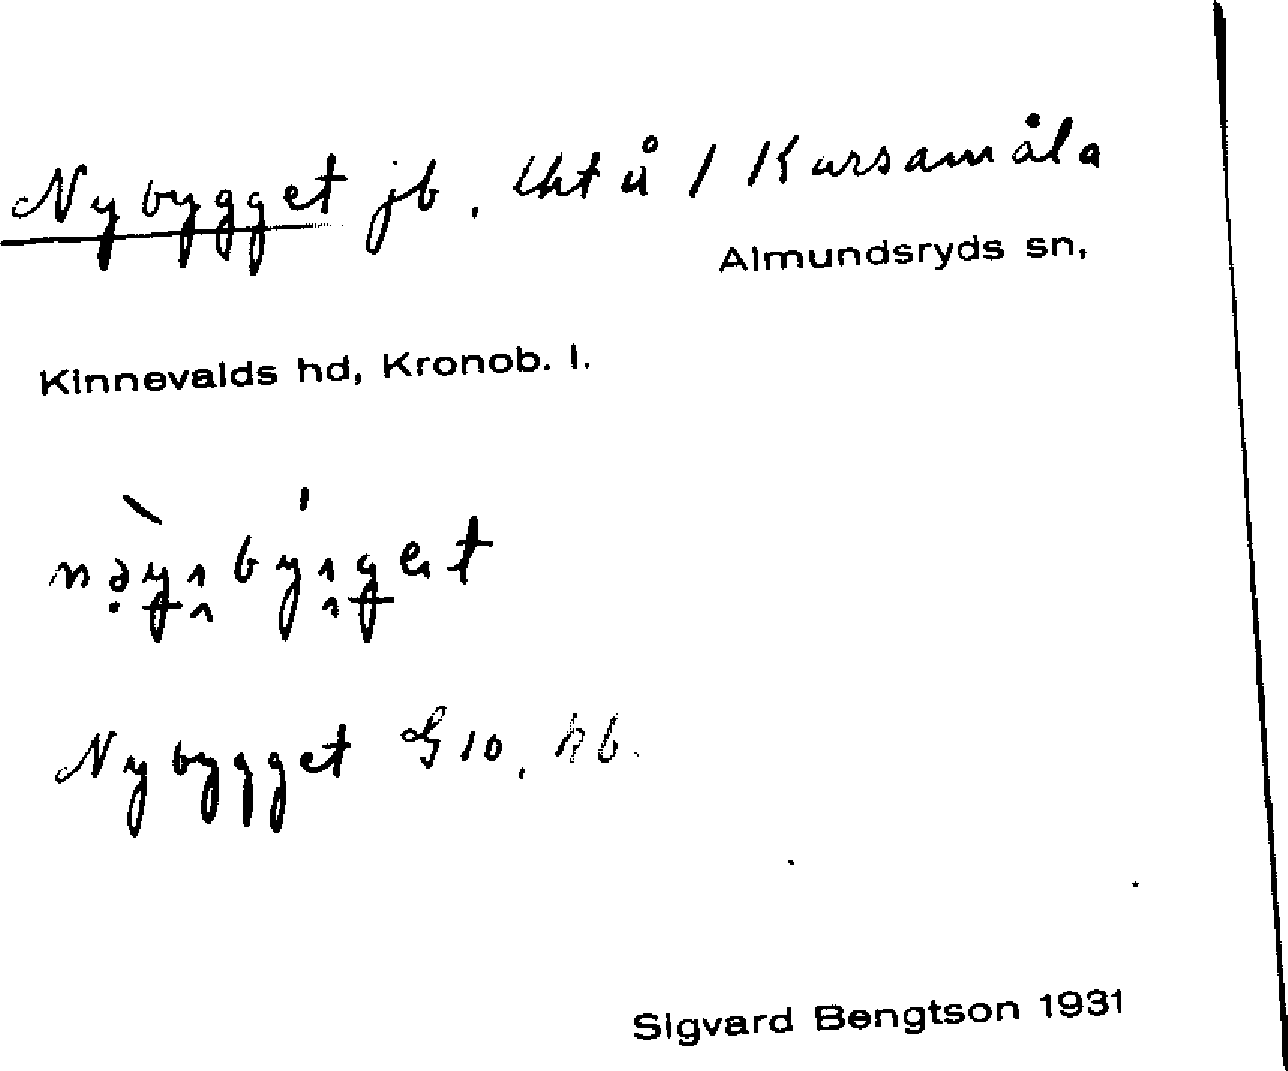 Nybygget jb. lht å 1 Kursamåla
Almundsryds sn,
Kinnevalds hd, Kronob. l.
Nybygget G 10. kb.
Sigvard Bengtson 1931